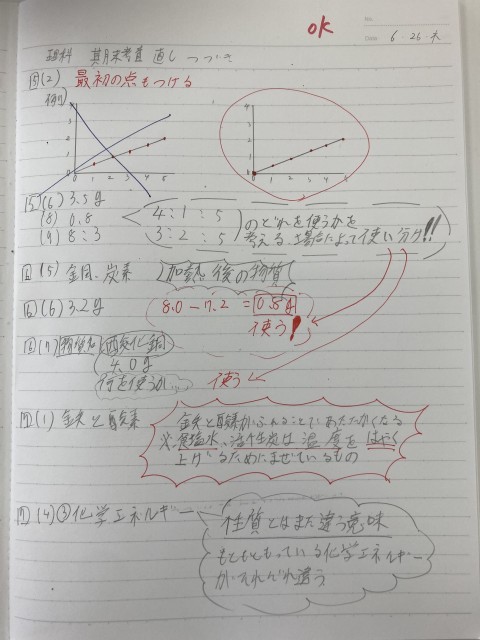 OK
No.
Date 6・26・木
理科 期末考査 直し つづき
5(2) 最初の点もつける
例)
4
3
2
1
0
0 1 2 3 4 5
4
3
2
1
0
0 1 2 3 4 5
5(6) 3.5g
(8) 0.8
(9) 8:3
4:1:5
3:2:5
のどれを使うかを
考える、場合によって使い分け!!
6(5) 金同、炭素 加熱後の物質
6(6) 3.2g
8.0-7.2=0.8g
使う!
6(7) 酸化銅
4.0g
何を使うか…
使う
7(1) 金失と酸素
金失と酸素がふれることであたたかくなる
※食塩水、活性炭は温度をはやく
上げるためにまぜているもの
7(4)③化学エネルギー
性質とはまた違う意味
もともともっている化学エネルギー
がそれぞれ違う